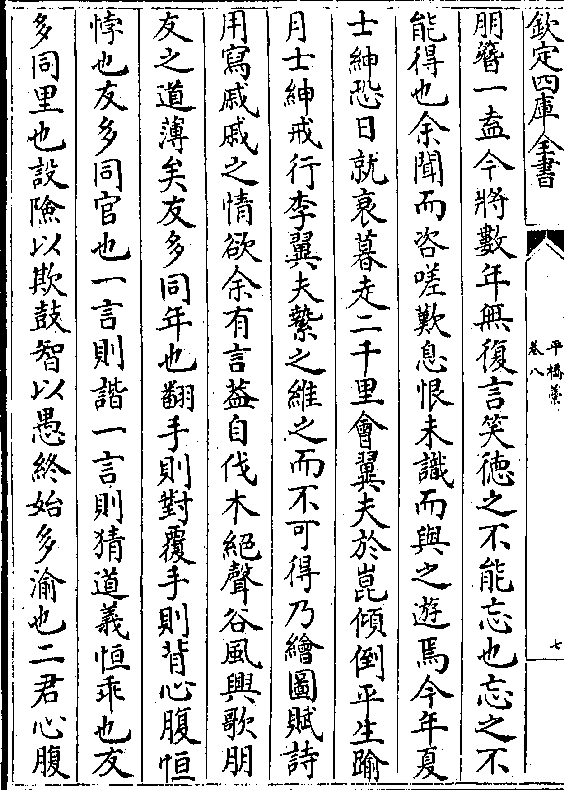 欽定四庫全書
平橋藁
卷八
七
朋簪一盍今將數年無復言笑徳之不能忘也忘之不
能得也余聞而咨嗟歎息恨未識而與之遊焉今年夏
士紳恐日就衰暮走二千里會翼夫於崑傾倒平生踰
月士紳戒行李翼夫縶之維之而不可得乃繪圖賦詩
用寫戚戚之情欲余有言葢自伐木絶聲谷風興歌朋
友之道薄矣友多同年也翻手則對覆手則背心腹恒
悖也友多同官也一言則諧一言則猜道義恒乖也友
多同里也設險以欺鼓智以愚終始多渝也二君心腹